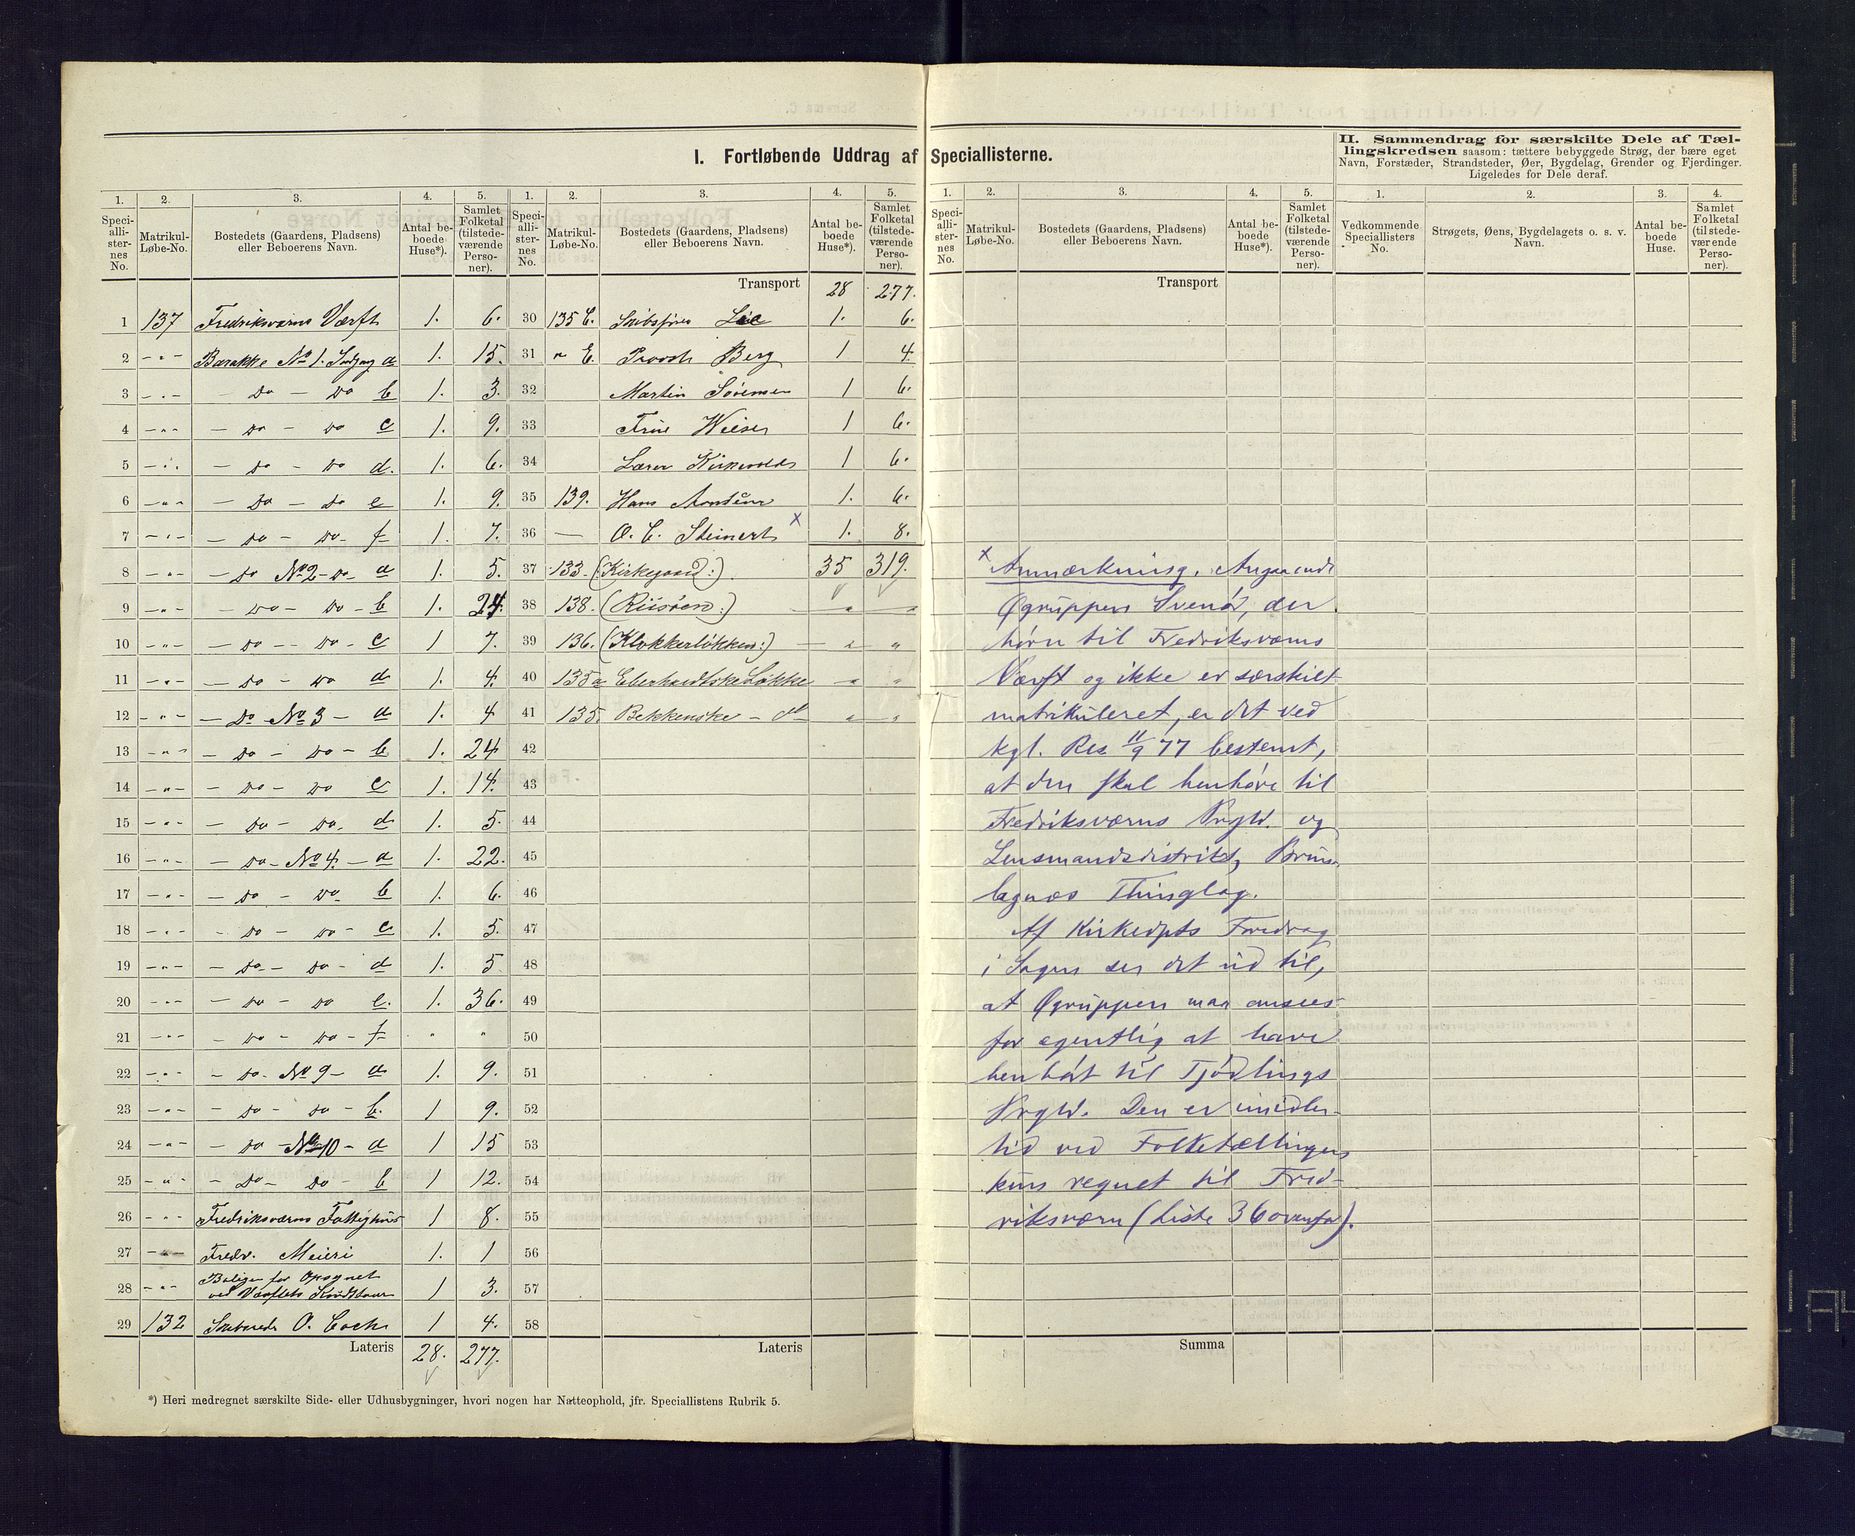 I. Fortløbende Uddrag af Speciallisterne.
II. Sammendrag for særskilte Dele af Tæl-
lingskredsen saasom: tættere bebyggede Strøg, der bære eget
Navn, Forstæder, Strandsteder, Øer, Bygdelag, Grender og Fjerdinger.
Ligeledes for Dele deraf.
1. 2. 3. 4. 5. 1. 2. 3. 4. 5. 1. 2. 3. 4. 5. 1. 2. 3. 4.
Speci-allister-nes No. Matrikul-Løbe-No. Bostedets (Gaardens, Pladsens) eller Beboerens Navn. Antal be-boede Huse*). Samlet Folketal (tilstede-værende Perso-ner).
Speci-alli-ster-nes No. Matrikul-Løbe-No. Bostedets (Gaardens, Pladsens) eller Beboerens Navn. Antal be-boede Huse*). Samlet Folketal (tilstede-værende Perso-ner).
Speci-alli-ster-nes No. Matrikul-Løbe-No. Bostedets (Gaardens, Pladsens) eller Beboerens Navn. Antal be-boede Huse*). Samlet Folketal (tilstede-værende Perso-ner).
Vedkommende Speciallisters No. Strøgets, Øens, Bygdelagets o. s. v. Navn. Antal be-boede Huse. Samlet Folketal (tilstede-værende Perso-ner).
1 137 Fredriksværns Værft 1. 6.
2 -"- Barakke No 1. Indgang a 1. 15.
3 -"- - Do - Do b 1. 3.
4 -"- - Do - Do c 1. 9.
5 -"- - Do - Do d. 1. 6.
6 -"- - Do - Do e 1. 9.
7 -"- - Do - Do- f 1. 7.
8 -"- - Do No 2 - Do- a 1. 5.
9 -"- - Do - Do - b 1. 24.
10 -"- - Do - Do - c 1 7.
11 -"- - Do - Do d 1. 4.
12 -"- - Do - No 3 - a 1. 4
13 -"- - Do - Do - b 1. 24
14 -"- - Do - Do c 1. 14.
15 -"- - Do - Do. d 1. 5.
16 -"- - Do - No 4. - a 1. 22.
17 -"- - Do - Do. b 1. 6.
18 -"- - Do - Do - c 1. 5.
19 -"- - Do - Do - d 1. 5
20 -"- - Do - Do e. 1. 36.
21 -"- - Do - Do - f " "
22 -"- - Do - No 9 - a 1. 9.
23 -"- - Do - Do - b. 1 9.
24 -"- - Do No 10 - a 1 15
25 -"- - Do - Do - b 1 12.
26 -"- Fredriksværns Fattighus 1 8.
27 -"- Fredv. Meieri 1. 1
28 -"- Boliger for Opsynet
ved Værftets 1 3.
29 132 O. Cock 1 4.
Lateris 28. 277.
Transport 28 277.
30 135 C. Skibsfører Lie 1. 6.
31 " E. Provst Berg 1 4.
32 Martin Sørensen 1 6.
33 Frue 1 6.
34 Lærer Kirkevolds 1 6.
35 139. Hans 1. 6.
36 — O. C. Steinert x 1. 8.
37 133. (Kirkegaard:) 35 319.
38 138. (Riisøen:) " "
39 136. (Klokkerløkken:) " "
40 135a Eberhardtske Løkke " "
41 135. Bekkenske - dt " "
42
43
44
45
46
47
48
49
50
51
52
53
54
55
56
57
58
Lateris
Transport
x Anmærkning. Angaaende
Øgruppen Svenør, der
hører til Fredriksværns
Værft og ikke er særskilt
matrikuleret, er det ved
kgl. Res. 11/9 77 bestemt,
at den skal henhøre til
Fredriksværns Prgld. og
Lensmandsdistrikt, Brun-
lagnæs Thinglag.
Af Kirkedpts Foredrag
i Sagen ser det ud til,
at Øgruppen maa ansees
for egentlig at have
henhørt til Tjødlings
Prgld. Den er imidler-
tid ved Folketællingen
kuns regnet til Fred-
riksværn (Liste 36 ovenfor).
Summa
*) Heri medregnet særskilte Side- eller Udhusbygninger, hvori nogen har Natteophold, jfr. Speciallistens Rubrik 5.